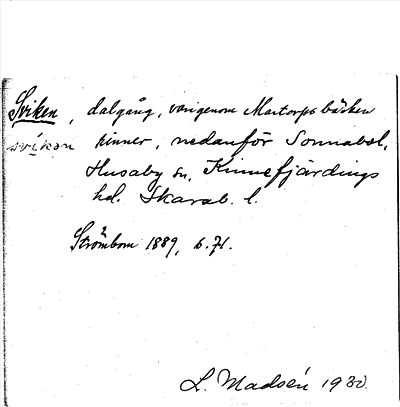 Sviken, dalgång, varigenom Martorps bäcken
svikən rinner, nedanför Sonnabol,
Husaby sn, Kinnefjärdings
hd. Skarab. l.
Strömbom 1889, s. 71.
L. Madsén 1930.